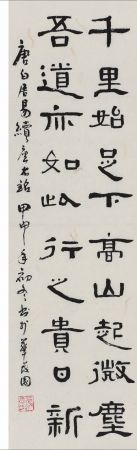 千里始足下高山起微塵
吾道亦如此行之貴日新
唐白居易續座右銘甲申年初冬書於華茂園